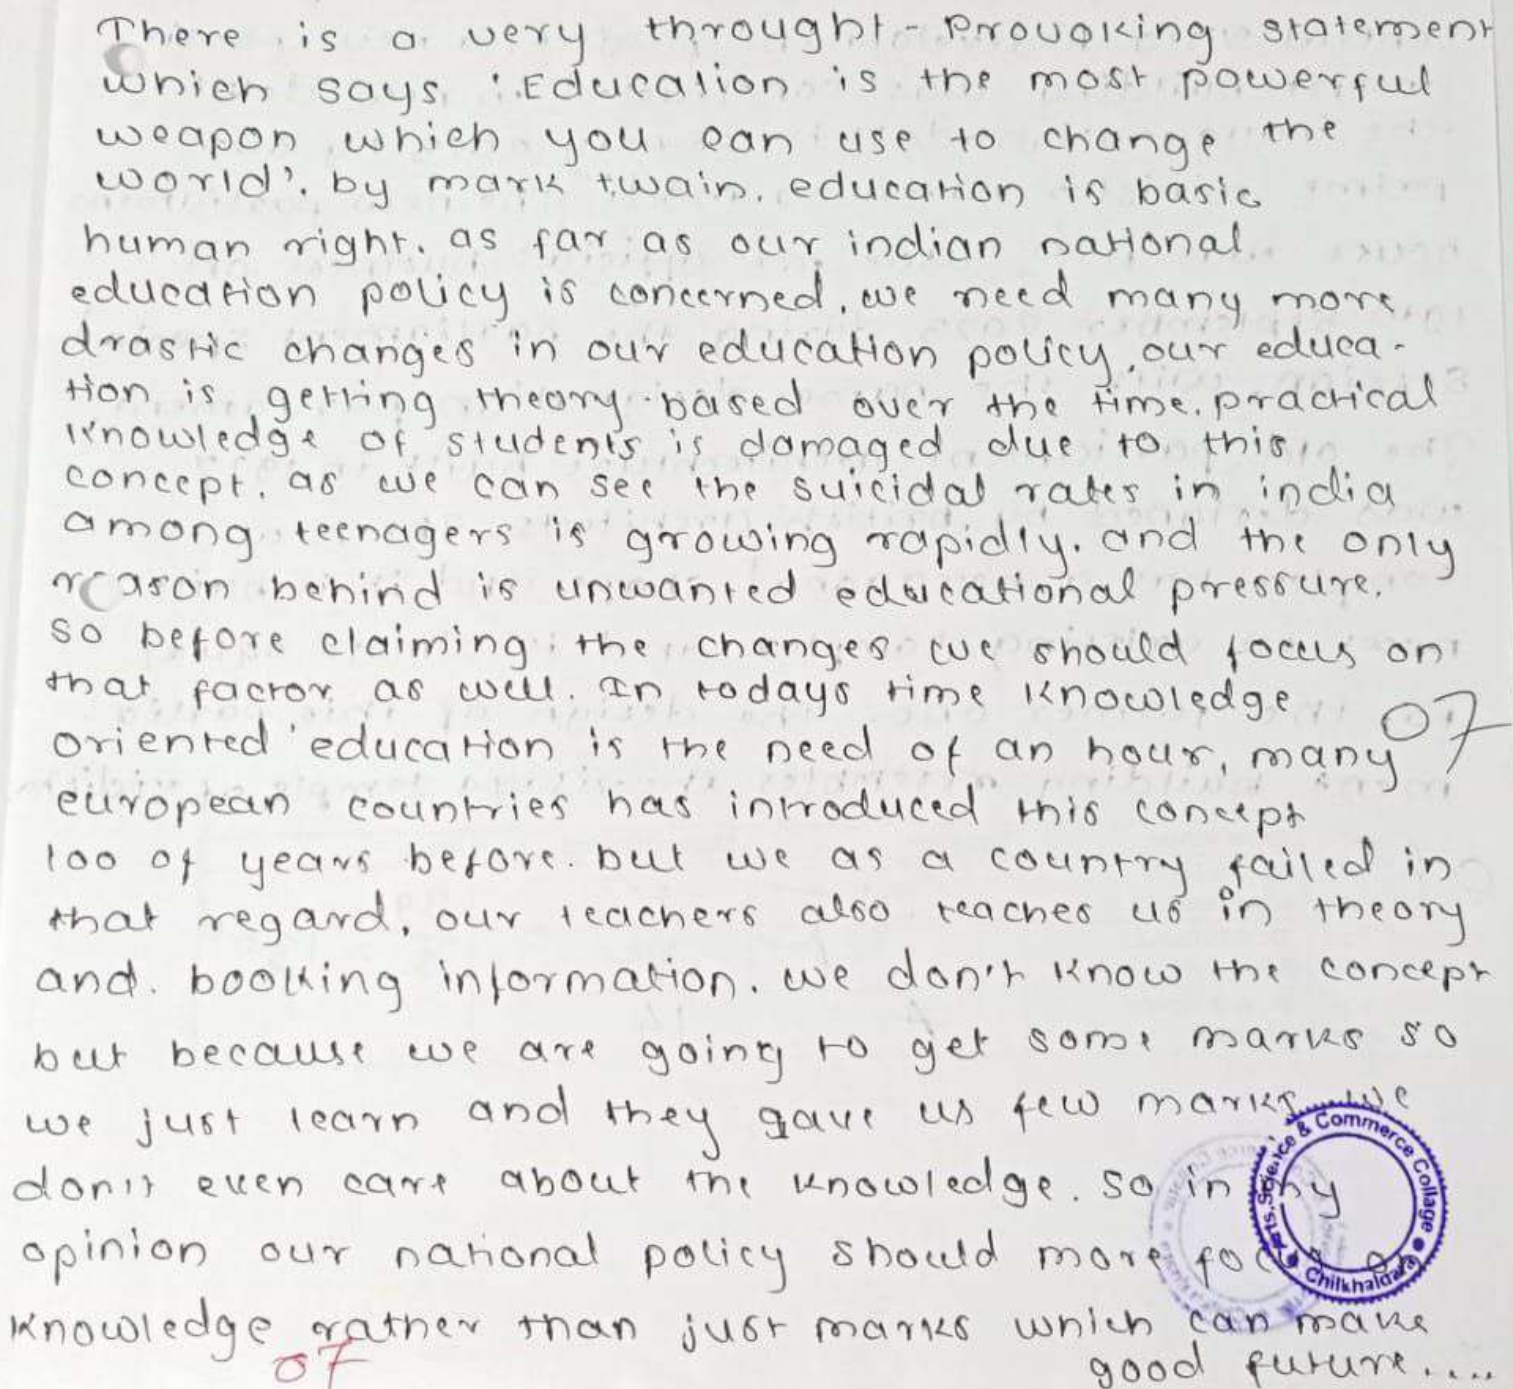 There is a very throught-Provoking statement
which says : Education is the most powerful
weapon which you can use to change the
world'. by mark twain. education is basic
human right. as far as our indian national
education policy is concerned, we need many more
drastic changes in our education policy, our educa-
tion is getting theory based over the time. practical
knowledge of students is damaged due to this
concept. as we can see the suicidal rates in india
among teenagers is growing rapidly. and the only
reason behind is unwanted educational pressure.
so before claiming the changes we should focus on
that factor as well. In todays time knowledge
oriented education is the need of an hour, many
07
european countries has introduced this concept
100 of years before. but we as a country failed in
that regard, our teachers also teaches us in theory
and booking information. we don't know the concept
but because we are going to get some marks so
we just learn and they gave us few marks we
don't even care about the knowledge. so in my
opinion our national policy should more focus on
knowledge rather than just marks which can make
good future....
07
Arts, Science & Commerce Collage
Chilkhaldara